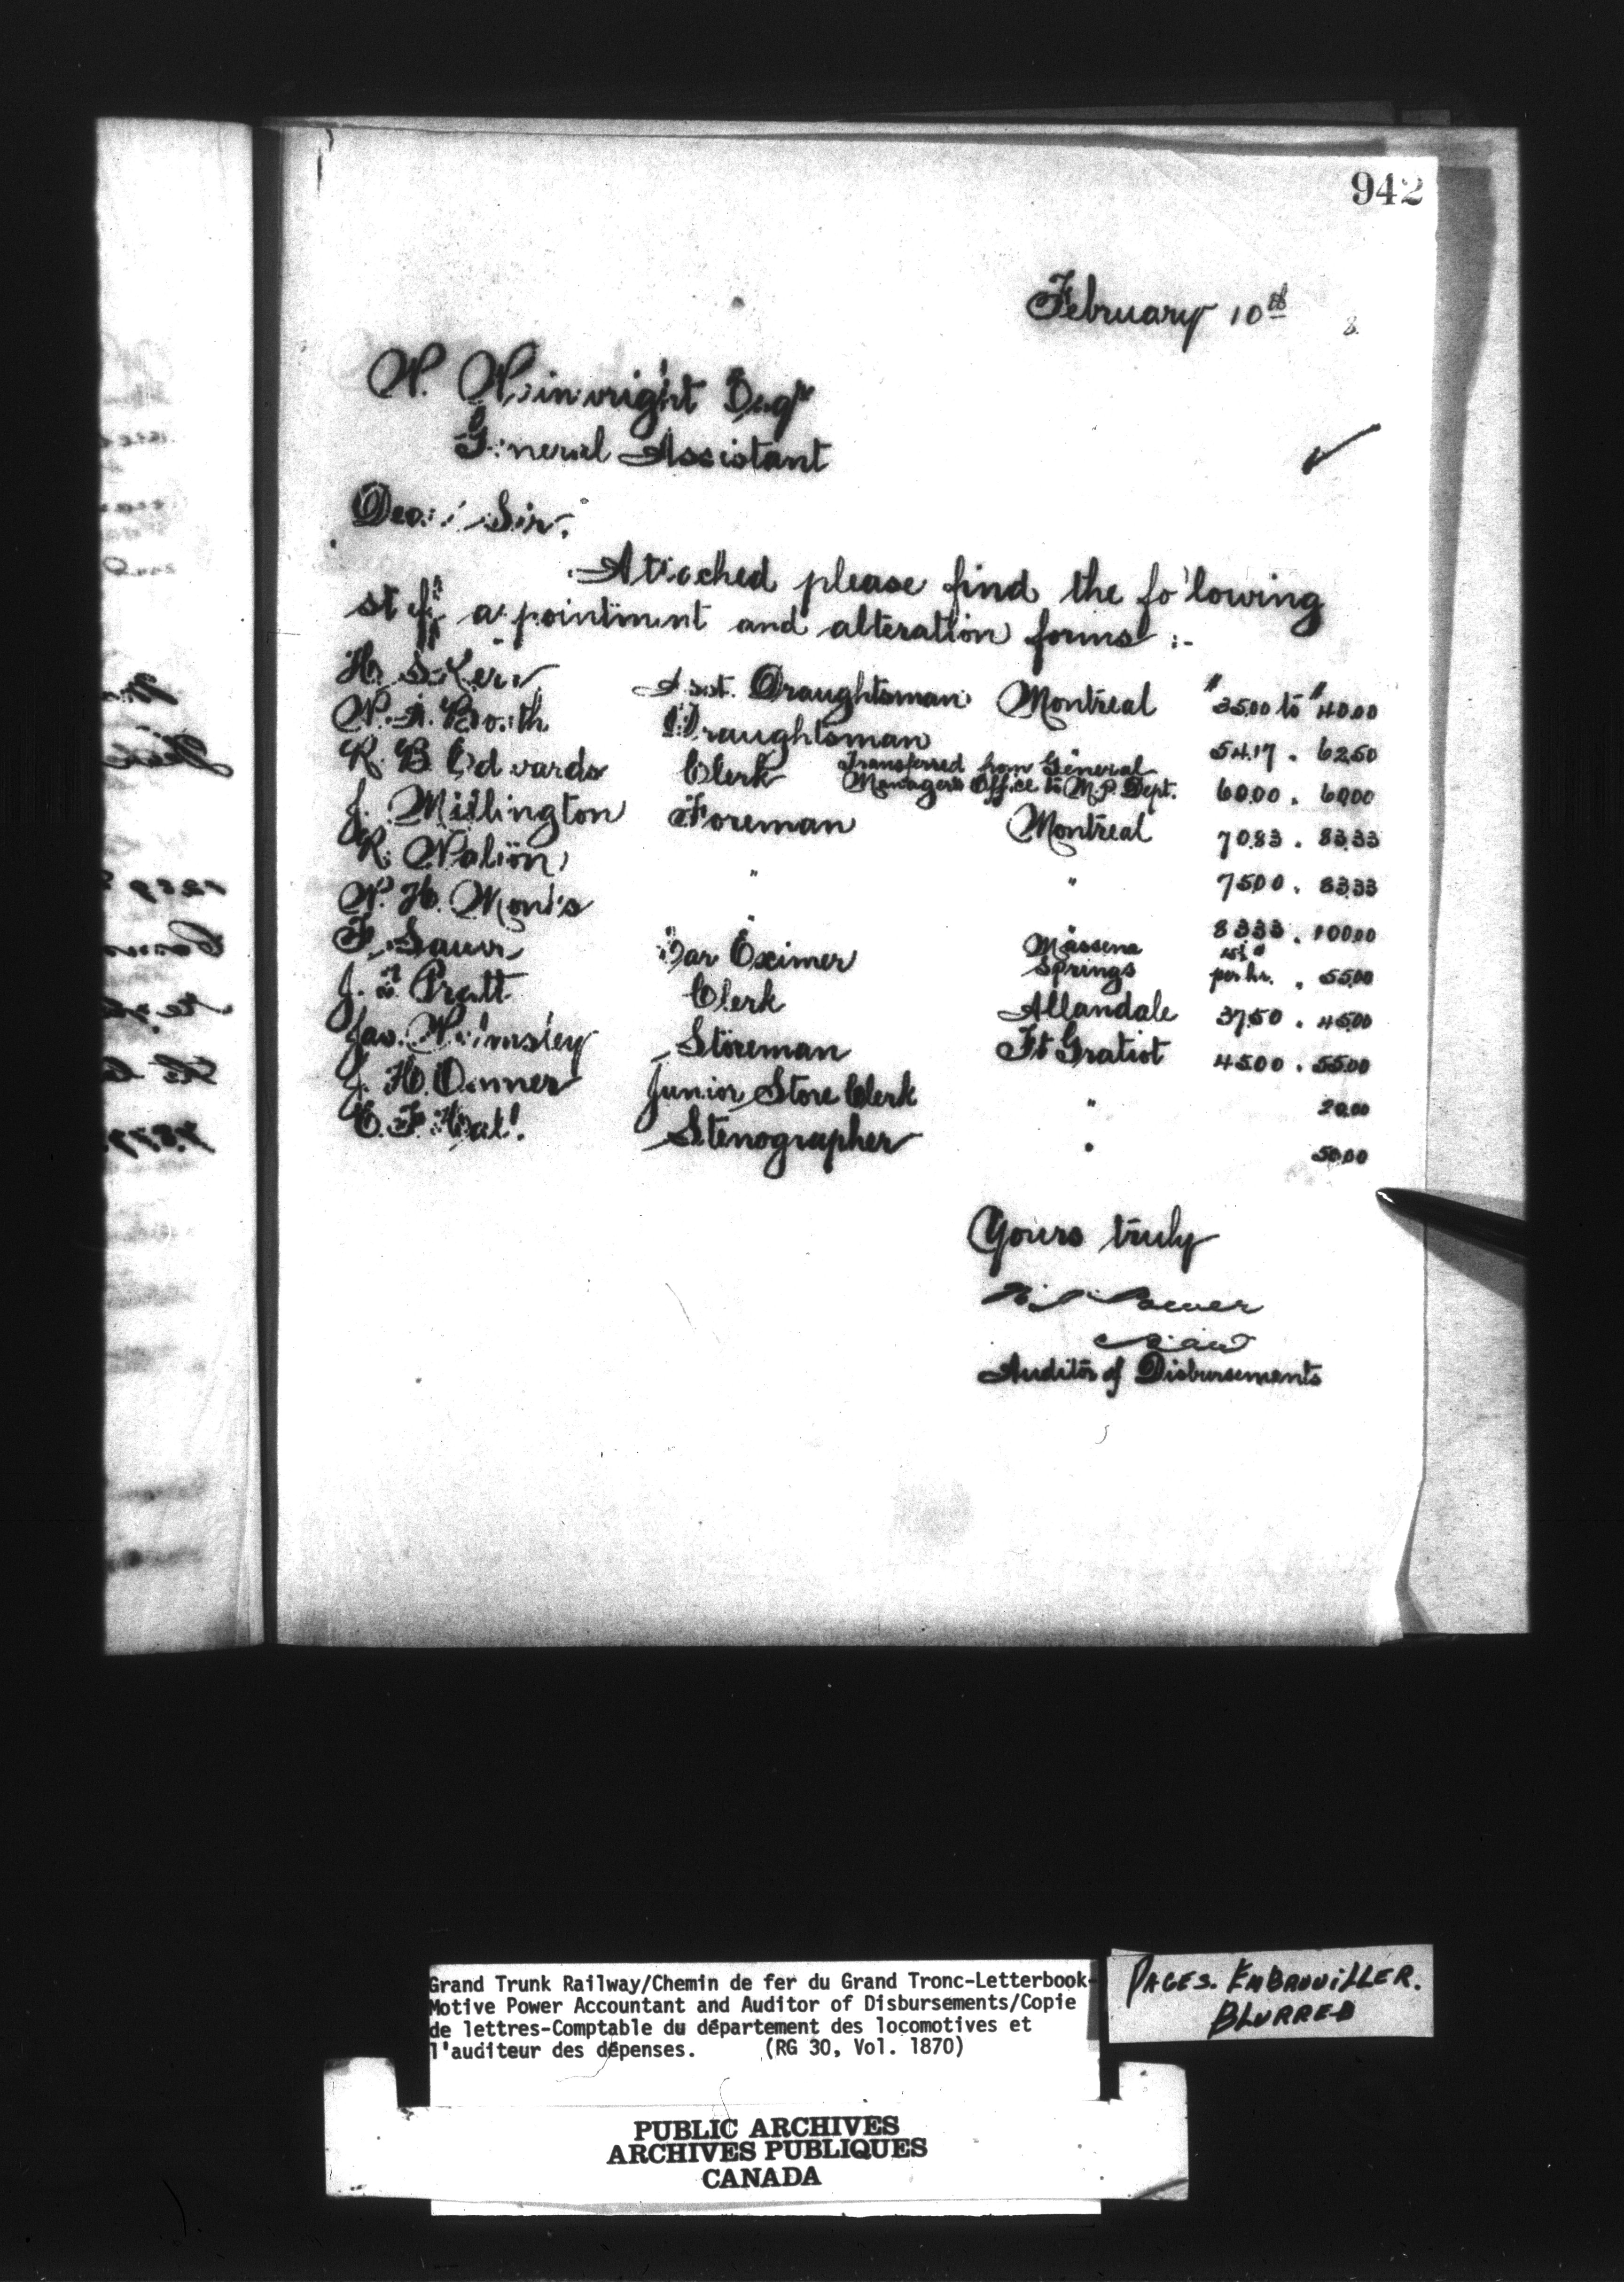 942
February 10th 8.
W. Wainwright Esqr
General Assistant
Dear Sir,
Attached please find the following
staff appointment and alteration forms :-
H. S. Kerr Asst. Draughtsman Montreal $35.00 to $40.00
W. A. Booth Draughtsman 54.17 " 62.50
R. B. Edwards Clerk Transferred from General
Managers Office to M.P. Dept. 60.00 " 60.00
J. Millington Foreman Montreal 70.83 " 83.33
R. " " 75.00 " 83.33
W. H. " 83.33 " 100.00
F. Car Eximer Massena
Springs per hr. " 55.00
J. Pratt Clerk Allandale 37.50 " 45.00
Jas. Walmsley Storeman Ft Gratiot 45.00 " 55.00
J. H. Junior Store Clerk " 20.00
E. F. Stenographer " 50.00
Yours truly
Auditor of Disbursements
Grand Trunk Railway/Chemin de fer du Grand Tronc-Letterbook-
Motive Power Accountant and Auditor of Disbursements/Copie
de lettres-Comptable du département des locomotives et
l'auditeur des dépenses. (RG 30, Vol. 1870)
PAGES. EMBROUILLER.
BLURRED
PUBLIC ARCHIVES
ARCHIVES PUBLIQUES
CANADA